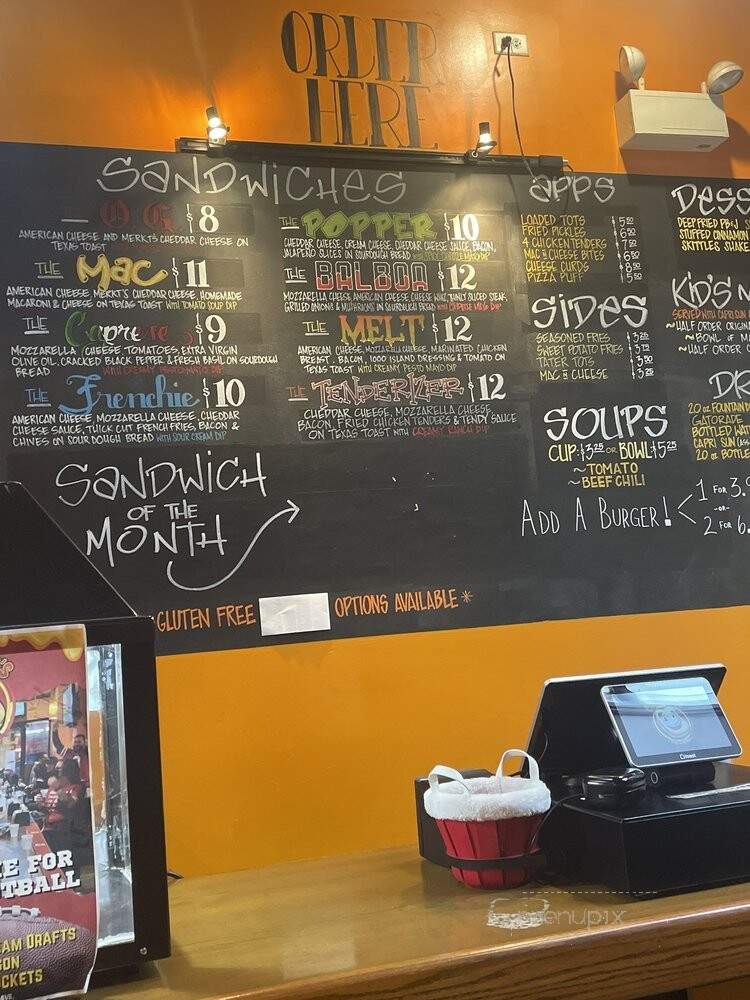 ORDER
HERE
SANDWICHES
O.G. $8
AMERICAN CHEESE AND MERKTS CHEDDAR CHEESE ON
TEXAS TOAST
THE MAC $11
AMERICAN CHEESE, MERKT'S CHEDDAR CHEESE, HOMEMADE
MACARONI & CHEESE ON TEXAS TOAST WITH TOMATO SOUP DIP
THE Caprese $9
MOZZARELLA CHEESE, TOMATOES, EXTRA VIRGIN
OLIVE OIL, CRACKED BLACK PEPPER & FRESH BASIL ON SOURDOUGH
BREAD WITH CREAMY PESTO MAYO DIP
THE Frenchie $10
AMERICAN CHEESE, MOZZARELLA CHEESE, CHEDDAR
CHEESE SAUCE, THICK CUT FRENCH FRIES, BACON &
CHIVES ON SOURDOUGH BREAD WITH SOUR CREAM DIP
THE POPPER $10
CHEDDAR CHEESE, CREAM CHEESE, CHEDDAR CHEESE SAUCE, BACON,
JALAPEÑO SLICES ON SOURDOUGH BREAD
THE BALBOA $12
MOZZARELLA CHEESE AMERICAN CHEESE CHEESE WHIZ, THINLY SLICED STEAK,
GRILLED ONIONS & MUSHROOMS ON SOURDOUGH BREAD WITH CHEESE WHIZ DIP
THE MELT $12
AMERICAN CHEESE, MOZZARELLA CHEESE, MARINATED CHICKEN
BREAST, BACON, 1000 ISLAND DRESSING & TOMATO ON
TEXAS TOAST WITH CREAMY PESTO MAYO DIP
THE TENDERIZER $12
CHEDDAR CHEESE, MOZZARELLA CHEESE,
BACON, FRIED CHICKEN TENDERS & TENDY SAUCE
ON TEXAS TOAST WITH CREAMY RANCH DIP
SANDWICH
OF THE
MONTH
GLUTEN FREE OPTIONS AVAILABLE *
APPS
LOADED TOTS $5.50
FRIED PICKLES $6.50
4 CHICKEN TENDERS $7.50
MAC N CHEESE BITES $6.50
CHEESE CURDS $8.50
PIZZA PUFF $5.50
SIDES
SEASONED FRIES $3.25
SWEET POTATO FRIES $3.75
TATER TOTS $3.50
MAC & CHEESE $3.50
SOUPS
CUP: $3.25 OR BOWL: $5.25
~ TOMATO
~ BEEF CHILI
ADD A BURGER! 1 FOR 3.
-OR-
2 FOR 6.
DESS
DEEP FRIED PB&J
STUFFED CINNAMON
SKITTLES SHAKE
KID'S M
SERVED WITH CAPRI SUN
~HALF ORDER ORIGIN
~BOWL OF M
~HALF ORDER C
DR
20 OZ FOUNTAIN D
GATORADE
BOTTLED WAT
CAPRI SUN
20 OZ BOTTLED
E FOR
TBALL
EAM DRAFTS
SON
CKETS
Clover
menupix